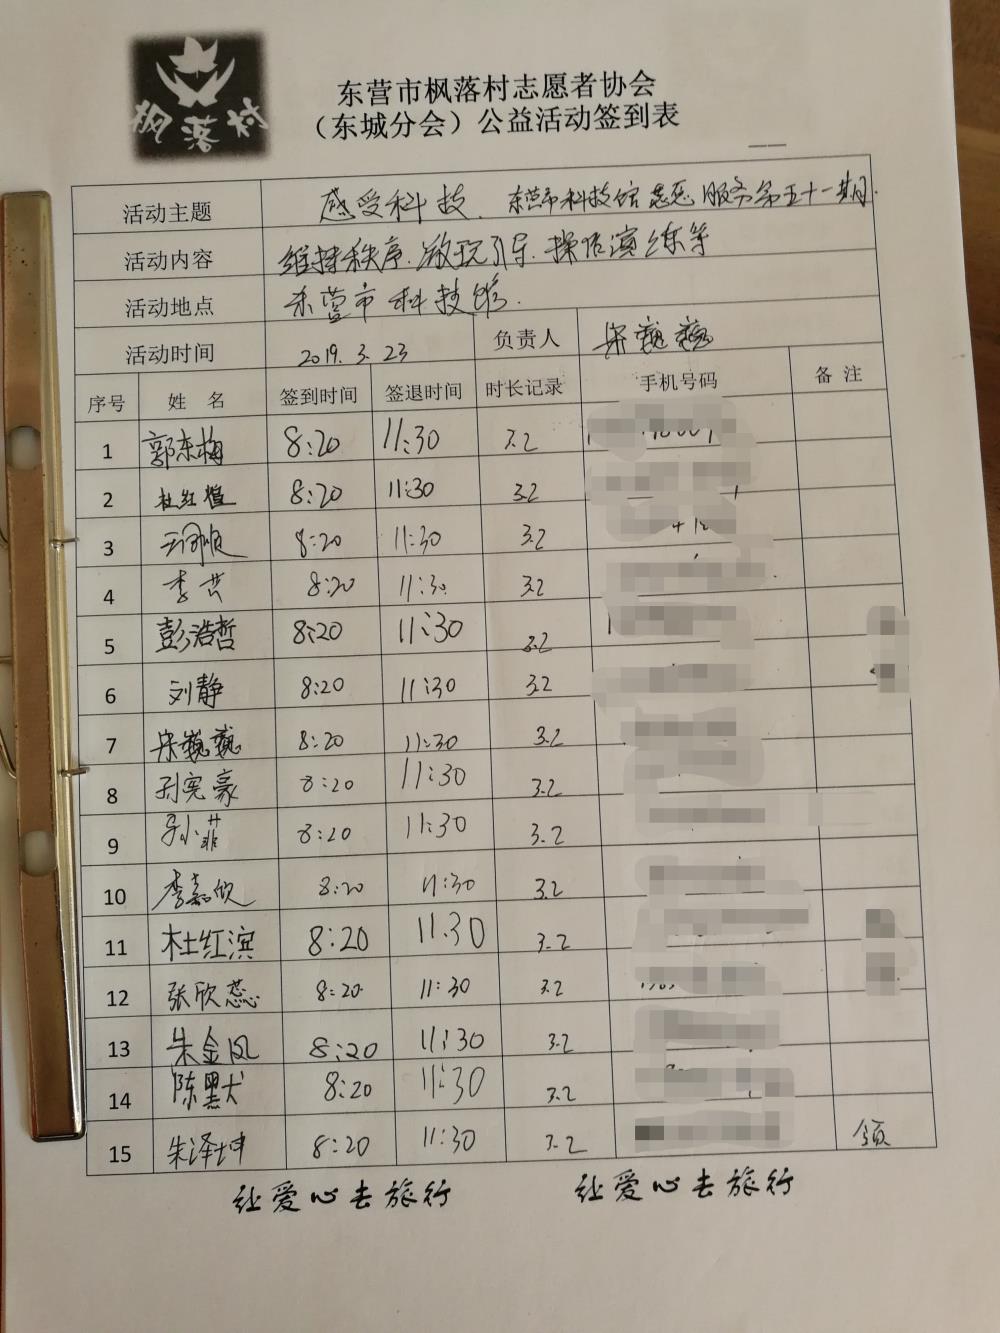 枫落村
东营市枫落村志愿者协会
（东城分会）公益活动签到表
活动主题 感受科技、东营市科技馆志愿服务第五十一期.
活动内容 维持秩序.游玩引导.操作演练等
活动地点 东营市科技馆.
活动时间 2019.3.23 负责人 宋巍巍
序号 姓名 签到时间 签退时间 时长记录 手机号码 备注
1 郭东梅 8:20 11:30 3.2
2 杜红 8:20 11:30 3.2
3 8:20 11:30 3.2
4 李 8:20 11:30 3.2
5 彭浩哲 8:20 11:30 3.2
6 刘静 8:20 11:30 3.2
7 宋巍巍 8:20 11:30 3.2
8 孙宪豪 8:20 11:30 3.2
9 小菲 8:20 11:30 3.2
10 李嘉欣 8:20 11:30 3.2
11 杜红滨 8:20 11.30 3.2
12 张欣蕊 8:20 11:30 3.2
13 朱金凤 8:20 11:30 3.2
14 陈默 8:20 11:30 3.2
15 朱泽坤 8:20 11:30 3.2 领
让爱心去旅行 让爱心去旅行